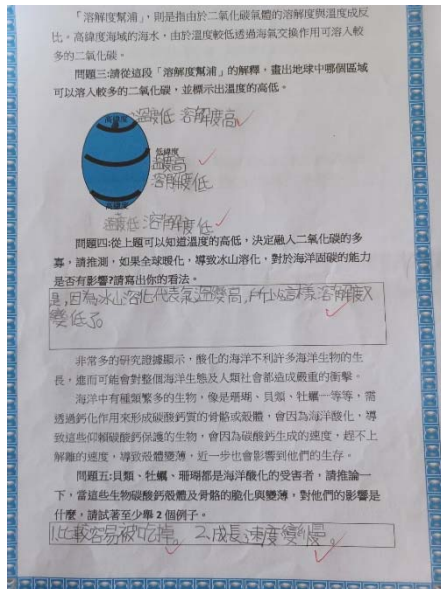 「溶解度幫浦」,則是指由於二氧化碳氣體的溶解度與溫度成反
比。高緯度海域的海水,由於溫度較低透過海氣交換作用可溶入較
多的二氧化碳。
問題三:請從這段「溶解度幫浦」的解釋,畫出地球中哪個區域
可以溶入較多的二氧化碳,並標示出溫度的高低。
高緯度
溫度低 溶解度高
低緯度
溫度高
溶解度低
高緯度
溫度低 溶解度低
問題四:從上題可以知道溫度的高低,決定融入二氧化碳的多
寡,請推測,如果全球暖化,導致冰山溶化,對於海洋固碳的能力
是否有影響?請寫出你的看法。
是,因為冰山溶化代表氣溫變高,所以這樣溶解度又
變低了。
非常多的研究證據顯示,酸化的海洋不利許多海洋生物的生
長,進而可能會對整個海洋生態及人類社會都造成嚴重的衝擊。
海洋中有種類繁多的生物,像是珊瑚、貝類、牡蠣一等等,需
透過鈣化作用來形成碳酸鈣質的骨骼或殼體,會因為海洋酸化,導
致這些仰賴碳酸鈣保護的生物,會因為碳酸鈣生成的速度,趕不上
解離的速度,導致殼體變薄,近一步也會影響到他們的生存。
問題五:貝類、牡蠣、珊瑚都是海洋酸化的受害者,請推論一
下,當這些生物碳酸鈣殼體及骨骼的脆化與變薄,對他們的影響是
什麼,請試著至少舉 2 個例子。
1.比較容易被吃掉。 2.成長速度變慢。